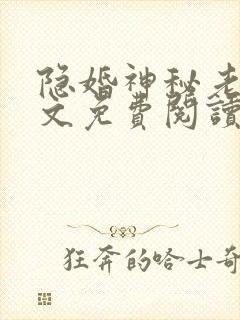 隐婚神秘老
文免費閱讀
狂奔的哈士奇